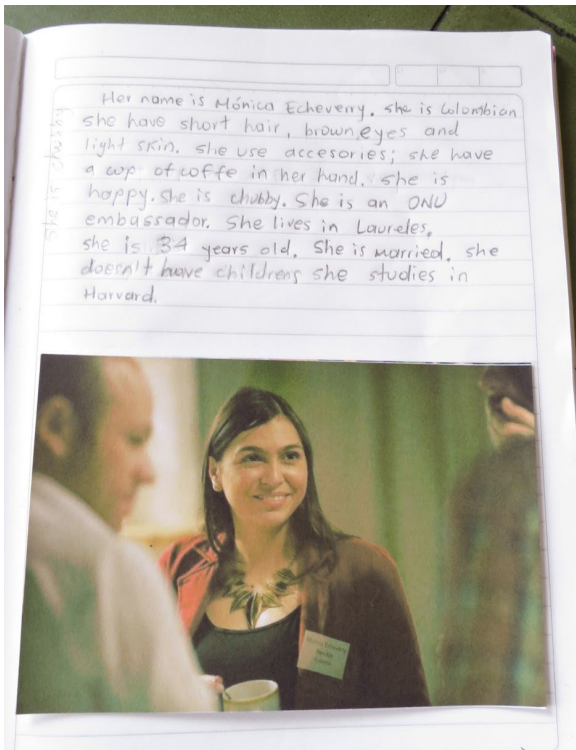 Her name is Mónica Echeverry. she is Colombian
she have short hair, brown eyes and
light skin. she use accesories; she have
a cup of coffe in her hand. she is
happy. She is chubby. She is an ONU
embassador. She lives in Laureles,
she is 34 years old. She is married, she
doesn't have childrens she studies in
Harvard.
she is
Mónica Echeverry